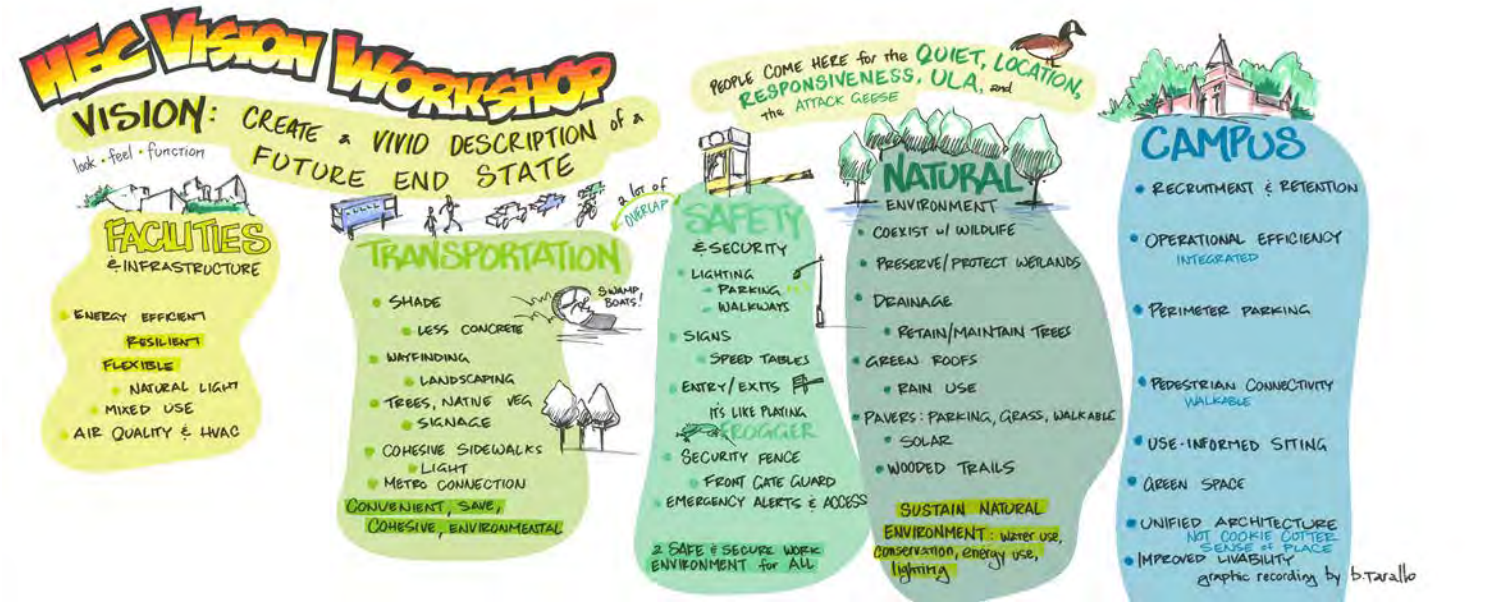 HEC VISION WORKSHOP
VISION: CREATE a VIVID DESCRIPTION of a
FUTURE END STATE
look • feel • function
PEOPLE COME HERE for the QUIET, LOCATION,
RESPONSIVENESS, ULA, and
the ATTACK GEESE
FACILITIES
& INFRASTRUCTURE
ENERGY EFFICIENT
RESILIENT
FLEXIBLE
NATURAL LIGHT
MIXED USE
AIR QUALITY & HVAC
a lot of
OVERLAP
TRANSPORTATION
SHADE
SWAMP
BOATS!
LESS CONCRETE
WAYFINDING
LANDSCAPING
TREES, NATIVE VEG
SIGNAGE
COHESIVE SIDEWALKS
LIGHT
METRO CONNECTION
CONVENIENT, SAVE,
COHESIVE, ENVIRONMENTAL
SAFETY
& SECURITY
LIGHTING
- PARKING
- WALKWAYS
SIGNS
SPEED TABLES
ENTRY/EXITS
IT'S LIKE PLAYING
FROGGER
SECURITY FENCE
FRONT GATE GUARD
EMERGENCY ALERTS & ACCESS
a SAFE & SECURE WORK
ENVIRONMENT for ALL
NATURAL
ENVIRONMENT
COEXIST w/ WILDLIFE
PRESERVE/PROTECT WETLANDS
DRAINAGE
RETAIN/MAINTAIN TREES
GREEN ROOFS
RAIN USE
PAVERS: PARKING, GRASS, WALKABLE
SOLAR
WOODED TRAILS
SUSTAIN NATURAL
ENVIRONMENT: water use,
conservation, energy use,
lighting
CAMPUS
RECRUITMENT & RETENTION
OPERATIONAL EFFICIENCY
INTEGRATED
PERIMETER PARKING
PEDESTRIAN CONNECTIVITY
WALKABLE
USE-INFORMED SITING
GREEN SPACE
UNIFIED ARCHITECTURE
NOT COOKIE COTTER
SENSE OF PLACE
IMPROVED LIVABILITY
graphic recording by b.Tarallo